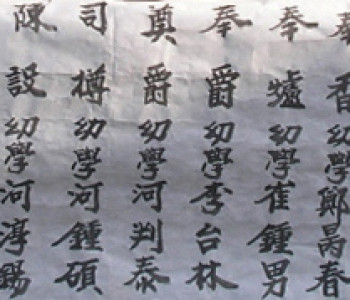 奉香幼學鄭昺春
奉爐幼學崔鍾男
奉爵幼學李台林
奠爵幼學河判泰
司樽幼學河鍾碩
陳設幼學河淳錫